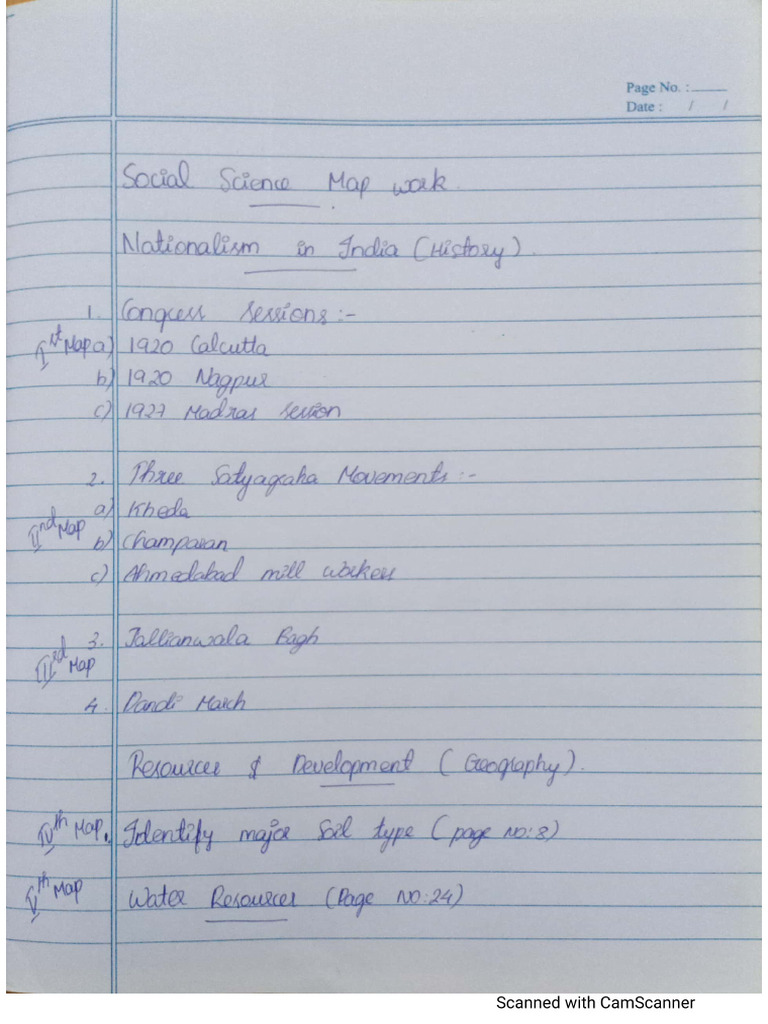 Page No. :
Date : / /
Social Science Map work.
Nationalism in India (History).
1. Congress Sessions:-
Ist Map a) 1920 Calcutta
b) 1920 Nagpur
c) 1927 Madras Session
2. Three Satyagraha Movements:-
a) Kheda
IInd Map b) Champaran
c) Ahmedabad mill workers
3. Jallianwala Bagh
IIIrd Map
4. Dandi March
Resources & Development (Geography).
IVth Map. Identify major Soil type (page no:8)
Vth Map Water Resources (Page No:24)
Scanned with CamScanner